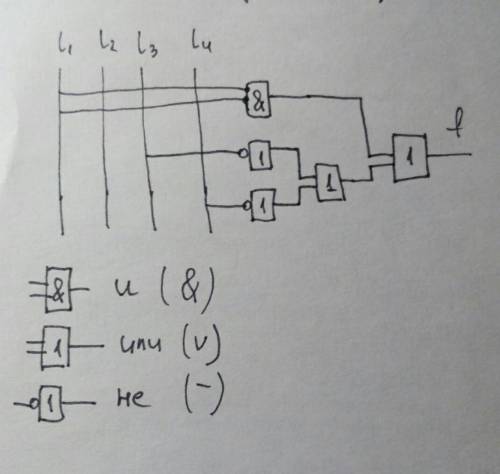 l₁ l₂ l₃ l₄
&
f
1
1
1
1
& и (&)
1 или (v)
1 не (–)